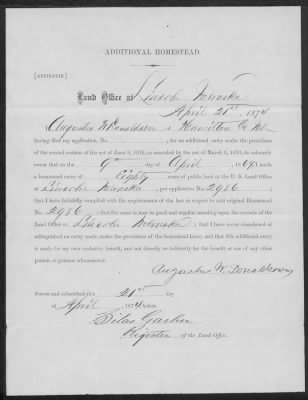 ADDITIONAL HOMESTEAD.
[AFFIDAVIT.]
Land Office at Lincoln Nebraska
April 21st 1874
Augustus W Donaldson, of Hamilton Co Neb.
having filed my application, No. for an additional entry under the provisions
of the second section of the act of June 8, 1872, as amended by the act of March 3, 1873, do solemnly
swear that on the 9th day of April, I made
a homestead entry of Eighty acres of public land at the U. S. Land Office
at Lincoln Nebraska, per application No. 2986;
that I have faithfully complied with the requirements of the law in respect to said original Homestead
No. 2986; that the same is now in good and regular standing upon the records of the
Land Office at Lincoln Nebraska; that I have never abandoned or
relinquished an entry made under the provisions of the homestead laws, and that this additional entry
is made for my own exclusive benefit, and not directly or indirectly for the benefit or use of any other
person or persons whomsoever.
Augustus W. Donaldson
Sworn and subscribed this 21st day
of April 1874 before
Silas Garber
Register of the Land Office.